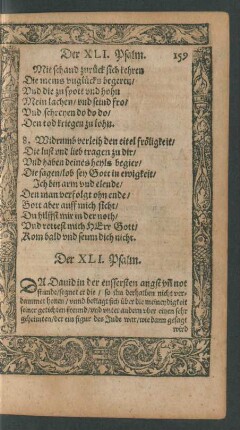 Der XLI. Psalm. 159
Mit schand zurück sich kehren
Die meins vnglücks begeren/
Vnd die zu spott vnd hohn
Mein lachen/ vnd seind fro/
Vnd schreyen do do do/
Den tod kriegen zu lohn.
8. Widerumb verleih den eitel fröligkeit/
Die lust vnd lieb tragen zu dir/
Vnd haben deines heyls begier/
Die sagen/ lob sey Gott in ewigkeit/
Ich bin arm vnd elende/
Den man verfolgt ohn ende/
Gott aber auff mich sicht/
Du hilffst mir in der noth/
Vnd rettest mich HErr Gott/
Kom bald vnd seum dich nicht.
Der XLI. Psalm.
DA Dauid in der eussersten angst vñ not
stunde/ segnet er die / so jhn derhalben nicht ver-
dammet hetten/ vnnd beklagt sich über die meineydigkeit
seiner getichten freund/ vnd vnter andern vber einen sehr
geheimten/ der ein figur des Jude war/ wie dann gesagt
wird